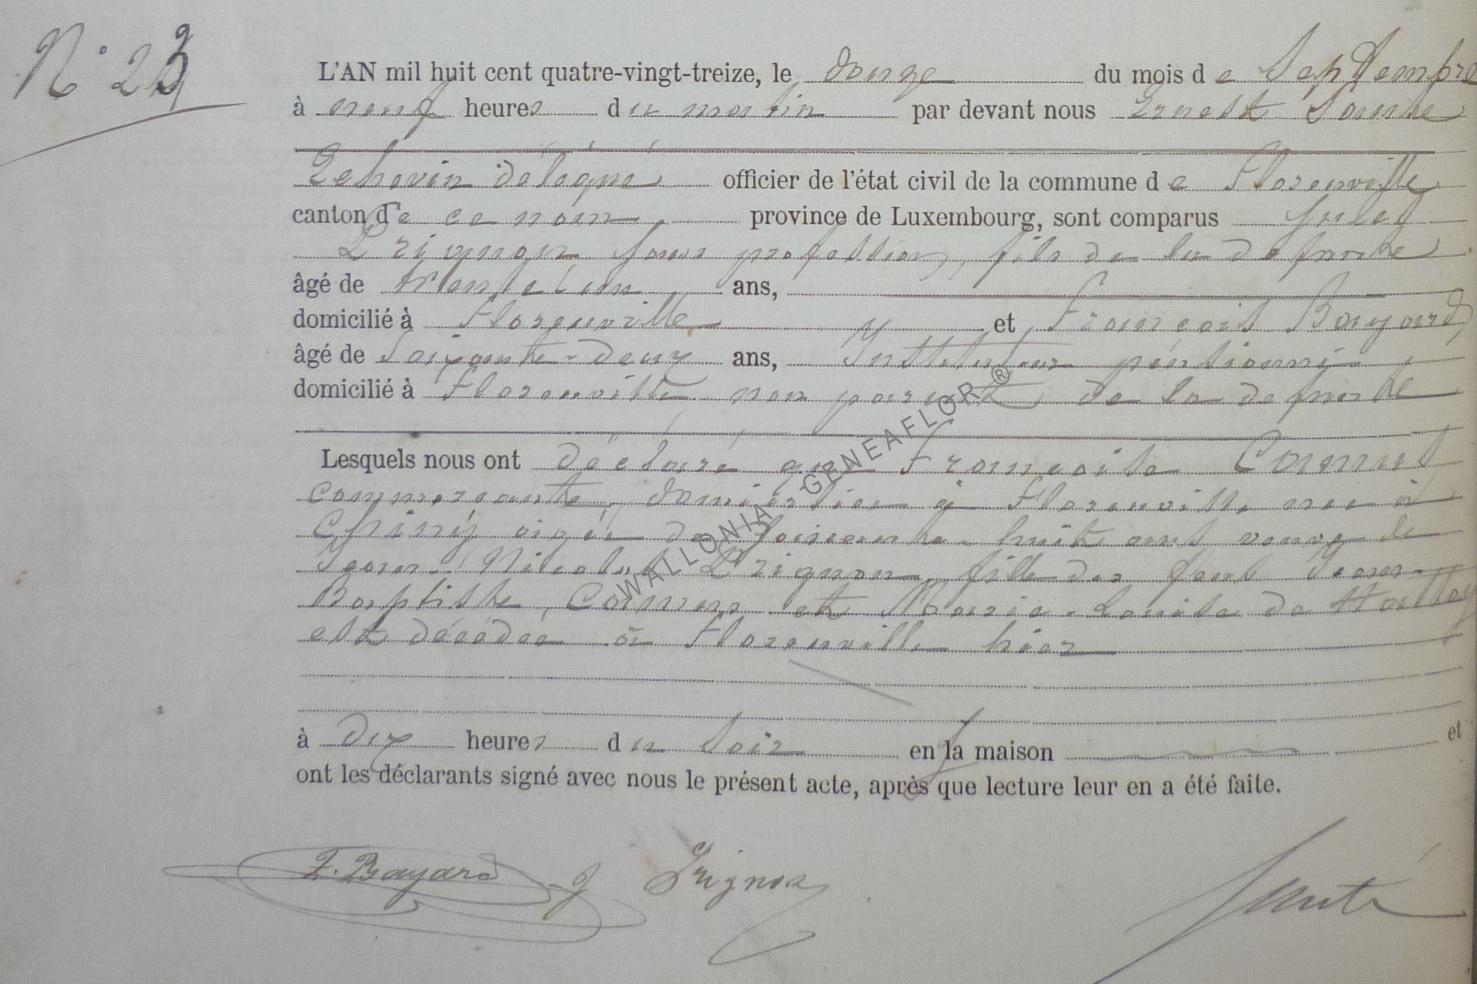 N° 23
L'AN mil huit cent quatre-vingt-treize, le douze du mois de Septembre
à neuf heures du matin par devant nous Ernest
Echevin délégué officier de l'état civil de la commune de Florenville
canton de ce nom, province de Luxembourg, sont comparus Jules
Grignon sans profession, fils de la défunte
âgé de trente un ans,
domicilié à Florenville et François Bayard,
âgé de soixante-deux ans, Instituteur pensionné,
domicilié à Florenville non parent de la défunte
Lesquels nous ont déclaré que Françoise Camus
commerçante, domiciliée à Florenville née à
Chiny âgée de soixante-huit ans veuve de
Jean-Nicolas Grignon, fille des feus Jean-
Baptiste Camus et Marie-Louise de
est décédée à Florenville hier
à dix heures du soir en la maison et
ont les déclarants signé avec nous le présent acte, après que lecture leur en a été faite.
F. Bayard J Grignon
WALLONIA GENEAFLOR ®